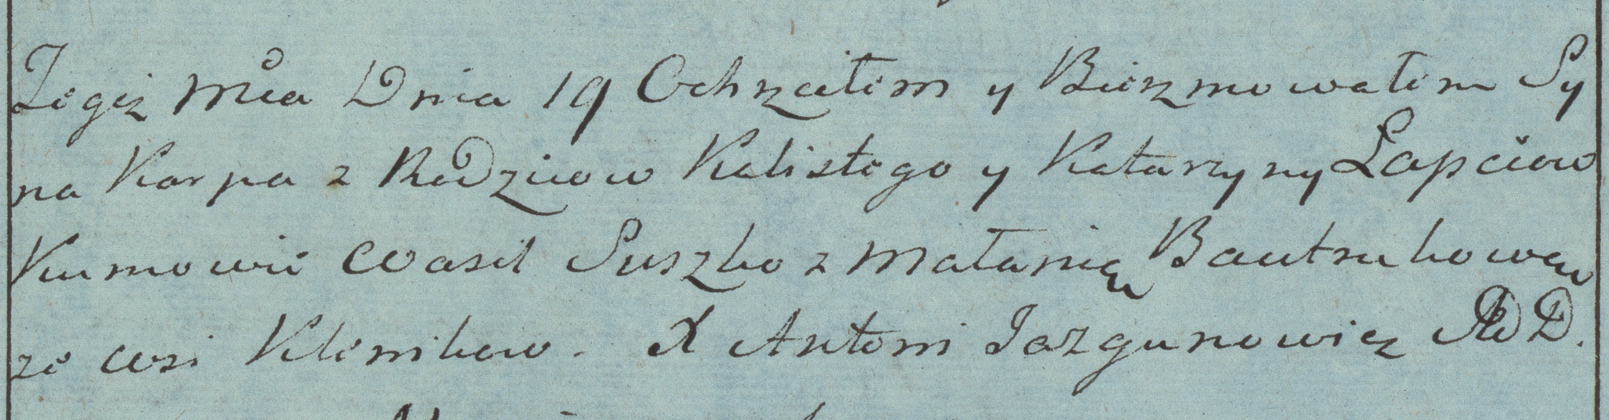 Tegiż Mca Dnia 19 Ochrzciłem y Bierzmowałem Sy
na Karpa z Rodziców Kalistego y Katarzyny Łapciow
Kumowie Wasil Suszko z Małanią Bautrukową
ze wsi Klonikow. X Antoni Jazgunowicz